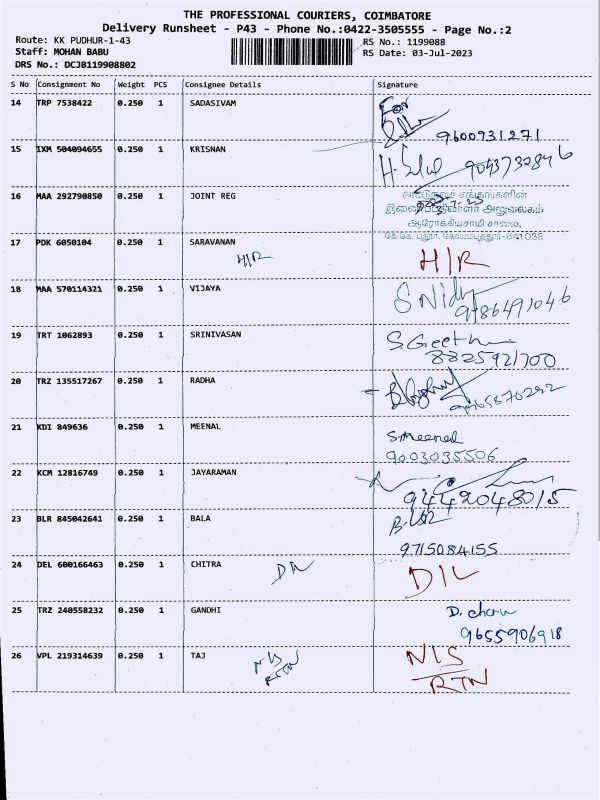 THE PROFESSIONAL COURIERS, COIMBATORE
Delivery Runsheet - P43 - Phone No.:0422-3505555 - Page No.:2
Route: KK PUDHUR-1-43
RS No.: 1199088
Staff: MOHAN BABU
RS Date: 03-Jul-2023
DRS No.: DCJB119908802
S No Consignment No Weight PCS Consignee Details Signature
14 TRP 7538422 0.250 1 SADASIVAM
For
9600931271
15 IXM 504094655 0.250 1 KRISNAN
9043732846
16 MAA 292790850 0.250 1 JOINT REG
கூட்டுறவு சங்கங்களின்
இணைப்பதிவாளர் அலுவலகம்
ஆரோக்கியசாமி சாலை,
கே.கே. புதூர், கோயம்புத்தூர்-641038
17 PDK 6050104 0.250 1 SARAVANAN
H/R
H/R
18 MAA 570114321 0.250 1 VIJAYA
S Nidhy
9786491046
19 TRT 1062893 0.250 1 SRINIVASAN
S.Geetha
8825921700
20 TRZ 135517267 0.250 1 RADHA
21 KDI 849636 0.250 1 MEENAL
S.Meenal
9003035506
22 KCM 12816749 0.250 1 JAYARAMAN
9442048015
23 BLR 845042641 0.250 1 BALA
9715084155
24 DEL 600166463 0.250 1 CHITRA
D/L
D/L
25 TRZ 240558232 0.250 1 GANDHI
9655906918
26 VPL 219314639 0.250 1 TAJ
N/S
RTN
N/S
RTN